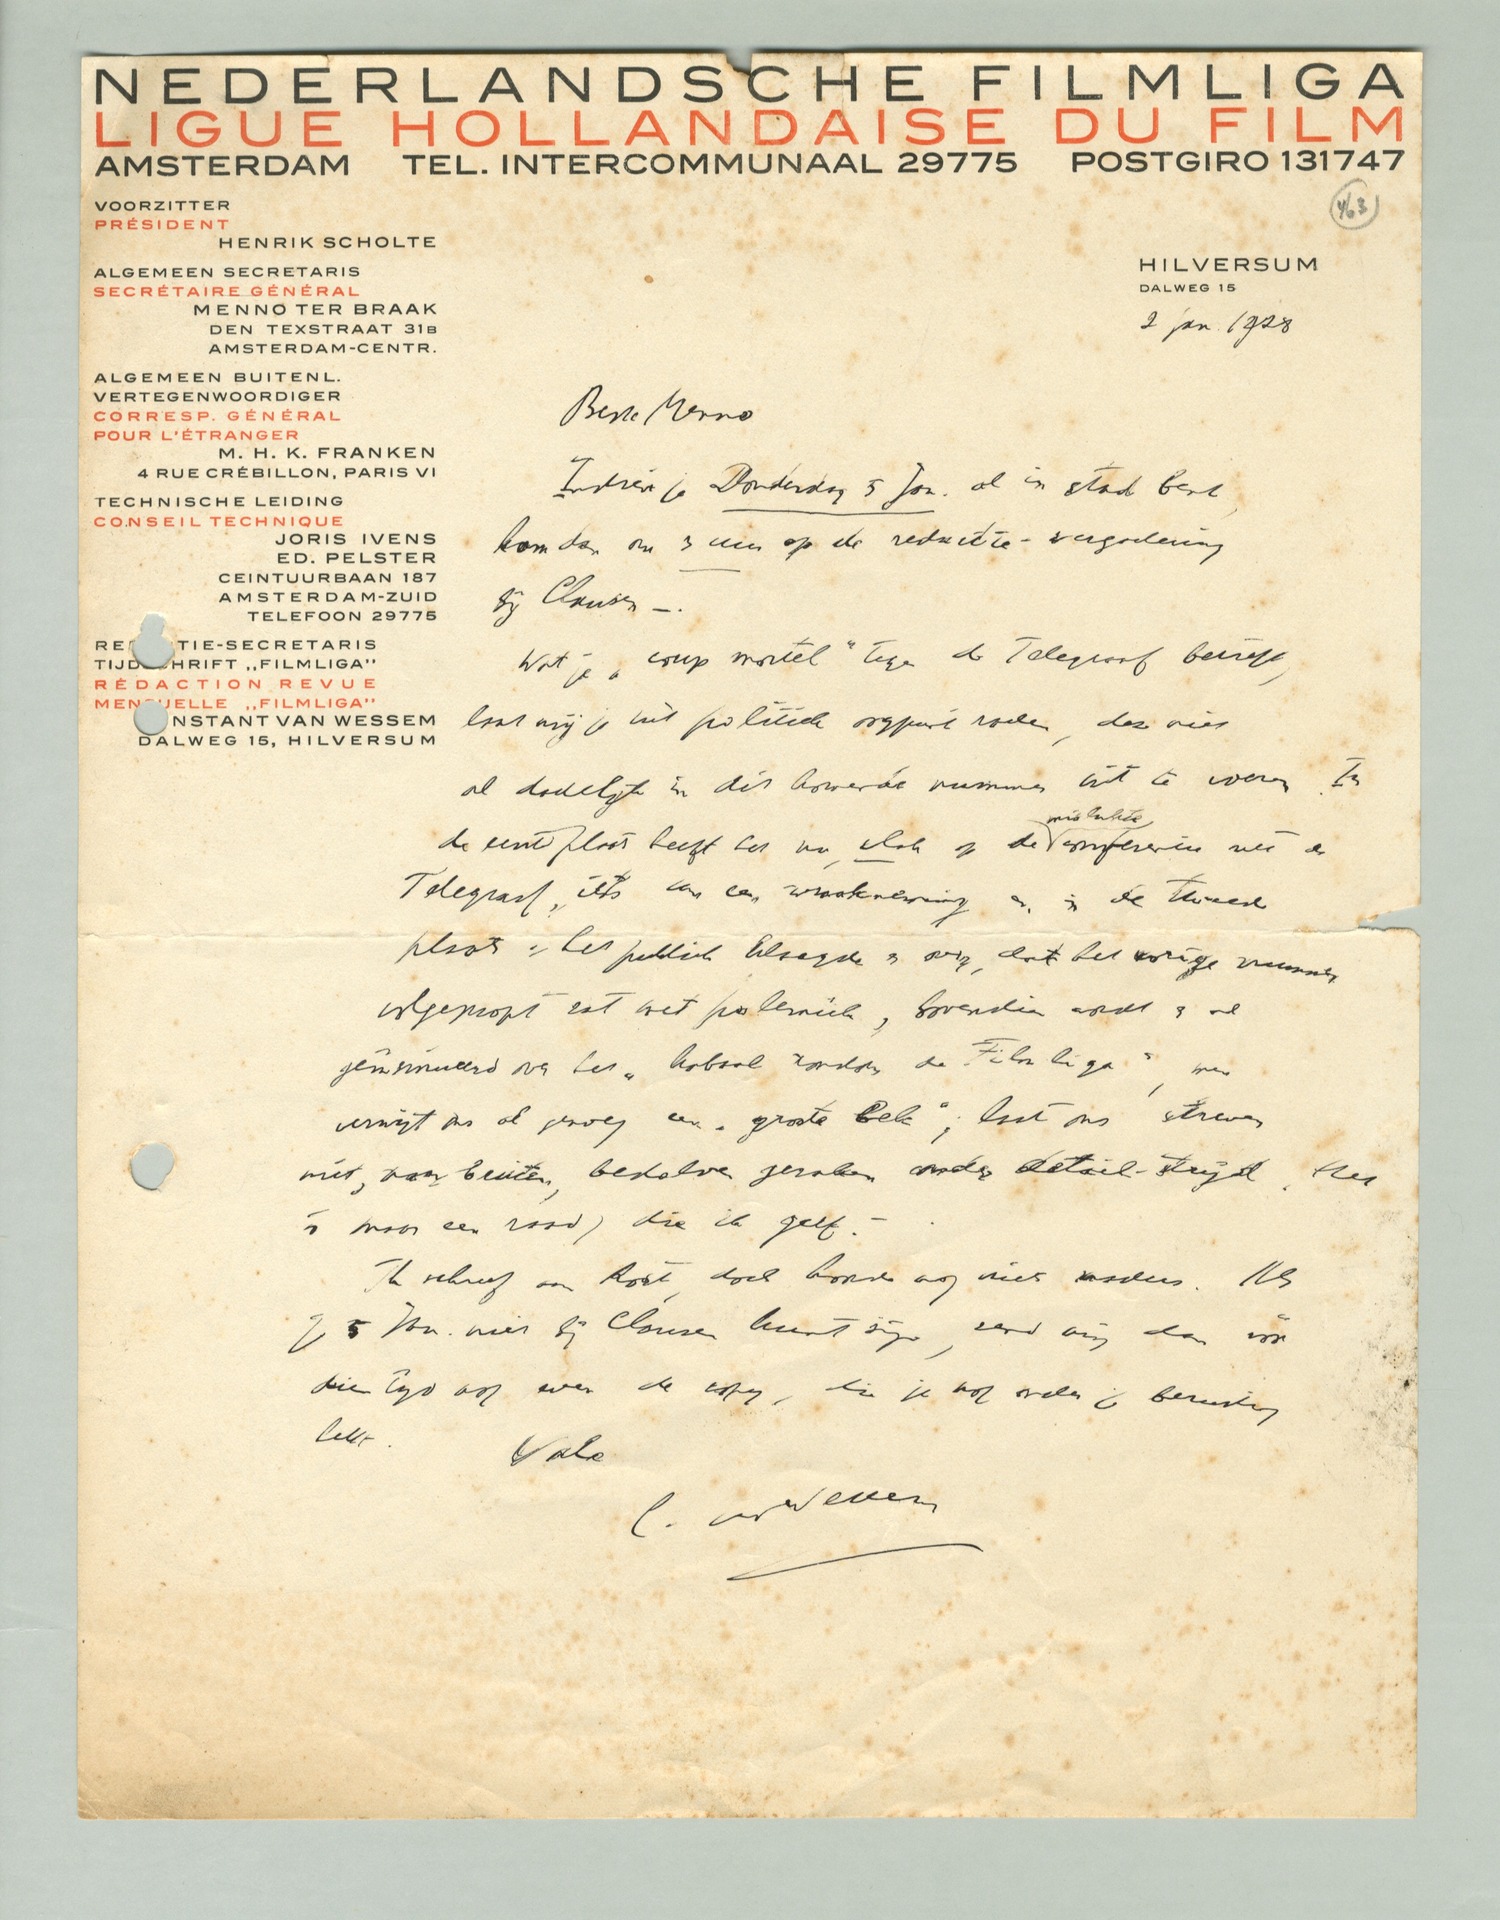 NEDERLANDSCHE FILMLIGA
LIGUE HOLLANDAISE DU FILM
AMSTERDAM TEL. INTERCOMMUNAAL 29775 POSTGIRO 131747
463
VOORZITTER
PRÉSIDENT
HENRIK SCHOLTE
ALGEMEEN SECRETARIS
SECRÉTAIRE GÉNÉRAL
MENNO TER BRAAK
DEN TEXSTRAAT 31B
AMSTERDAM-CENTR.
ALGEMEEN BUITENL.
VERTEGENWOORDIGER
CORRESP. GÉNÉRAL
POUR L'ÉTRANGER
M. H. K. FRANKEN
4 RUE CRÉBILLON, PARIS VI
TECHNISCHE LEIDING
CONSEIL TECHNIQUE
JORIS IVENS
ED. PELSTER
CEINTUURBAAN 187
AMSTERDAM-ZUID
TELEFOON 29775
RE TIE-SECRETARIS
TIJD HRIFT „FILMLIGA"
RÉDACTION REVUE
MENSUELLE „FILMLIGA"
NSTANT VAN WESSEM
DALWEG 15, HILVERSUM
HILVERSUM
DALWEG 15
2 jan. 1928
Beste Menno
Indien je Donderdag 5 Jan. al in stad bent,
kom dan om 3 uur op de redactie-vergadering
bij Clausen —.
Wat je „coup mortel" tegen de Telegraaf betreft,
laat mij je uit politiek oogpunt raden, dez niet
al dadelijk in dit komende nummer uit te voeren. In
de eerste plaats heeft het nu, vlak op de mislukte conferentie met de
Telegraaf, iets van een wraakneming en in de tweede
plaats: het publiek klaagde er over, dat het vorige nummer
volgepropt zat met polemiek, bovendien wordt er al
geïnsinueerd over het „kabaal rondom de Filmliga", men
verwijt ons al genoeg een „groote bek"; laat ons streven
niet, naar buiten, bedolven geraken onder detail-strijd. Het
is maar een raad, die ik geef.—
Ik schreef aan Kost, doch hoorde nog niet nader. Als
je 5 Jan. niet bij Clausen kunt zijn, zend mij dan vóór
dien tijd nog even de copy, die je nog onder je berusting
hebt.
Vale
C. van Wessem